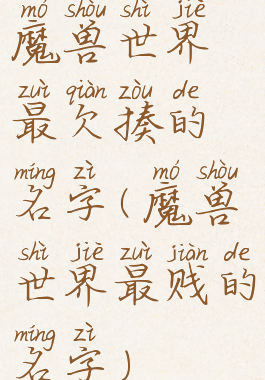 mó shòu shì jiè
魔兽世界
zuì qiàn zòu de
最欠揍的
míng zì mó shòu
名字(魔兽
shì jiè zuì jiàn de
世界最贱的
míng zì
名字)